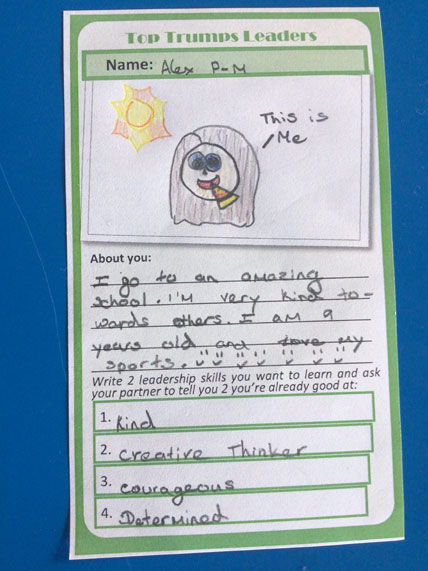 Top Trumps Leaders
Name: Alex P-M
This is
Me
About you:
I go to an amazing
school. I'm very kind to-
wards others. I am 9
years old and love my
sports.
Write 2 leadership skills you want to learn and ask
your partner to tell you 2 you're already good at:
1. kind
2. creative Thinker
3. courageous
4. Determined